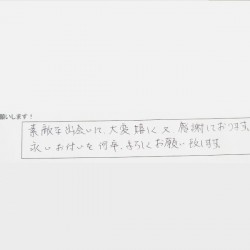 願いします!
素敵な出会いに、大変嬉しく又、感謝しております。
永いお付い を 何卒、よろしくお願い致します